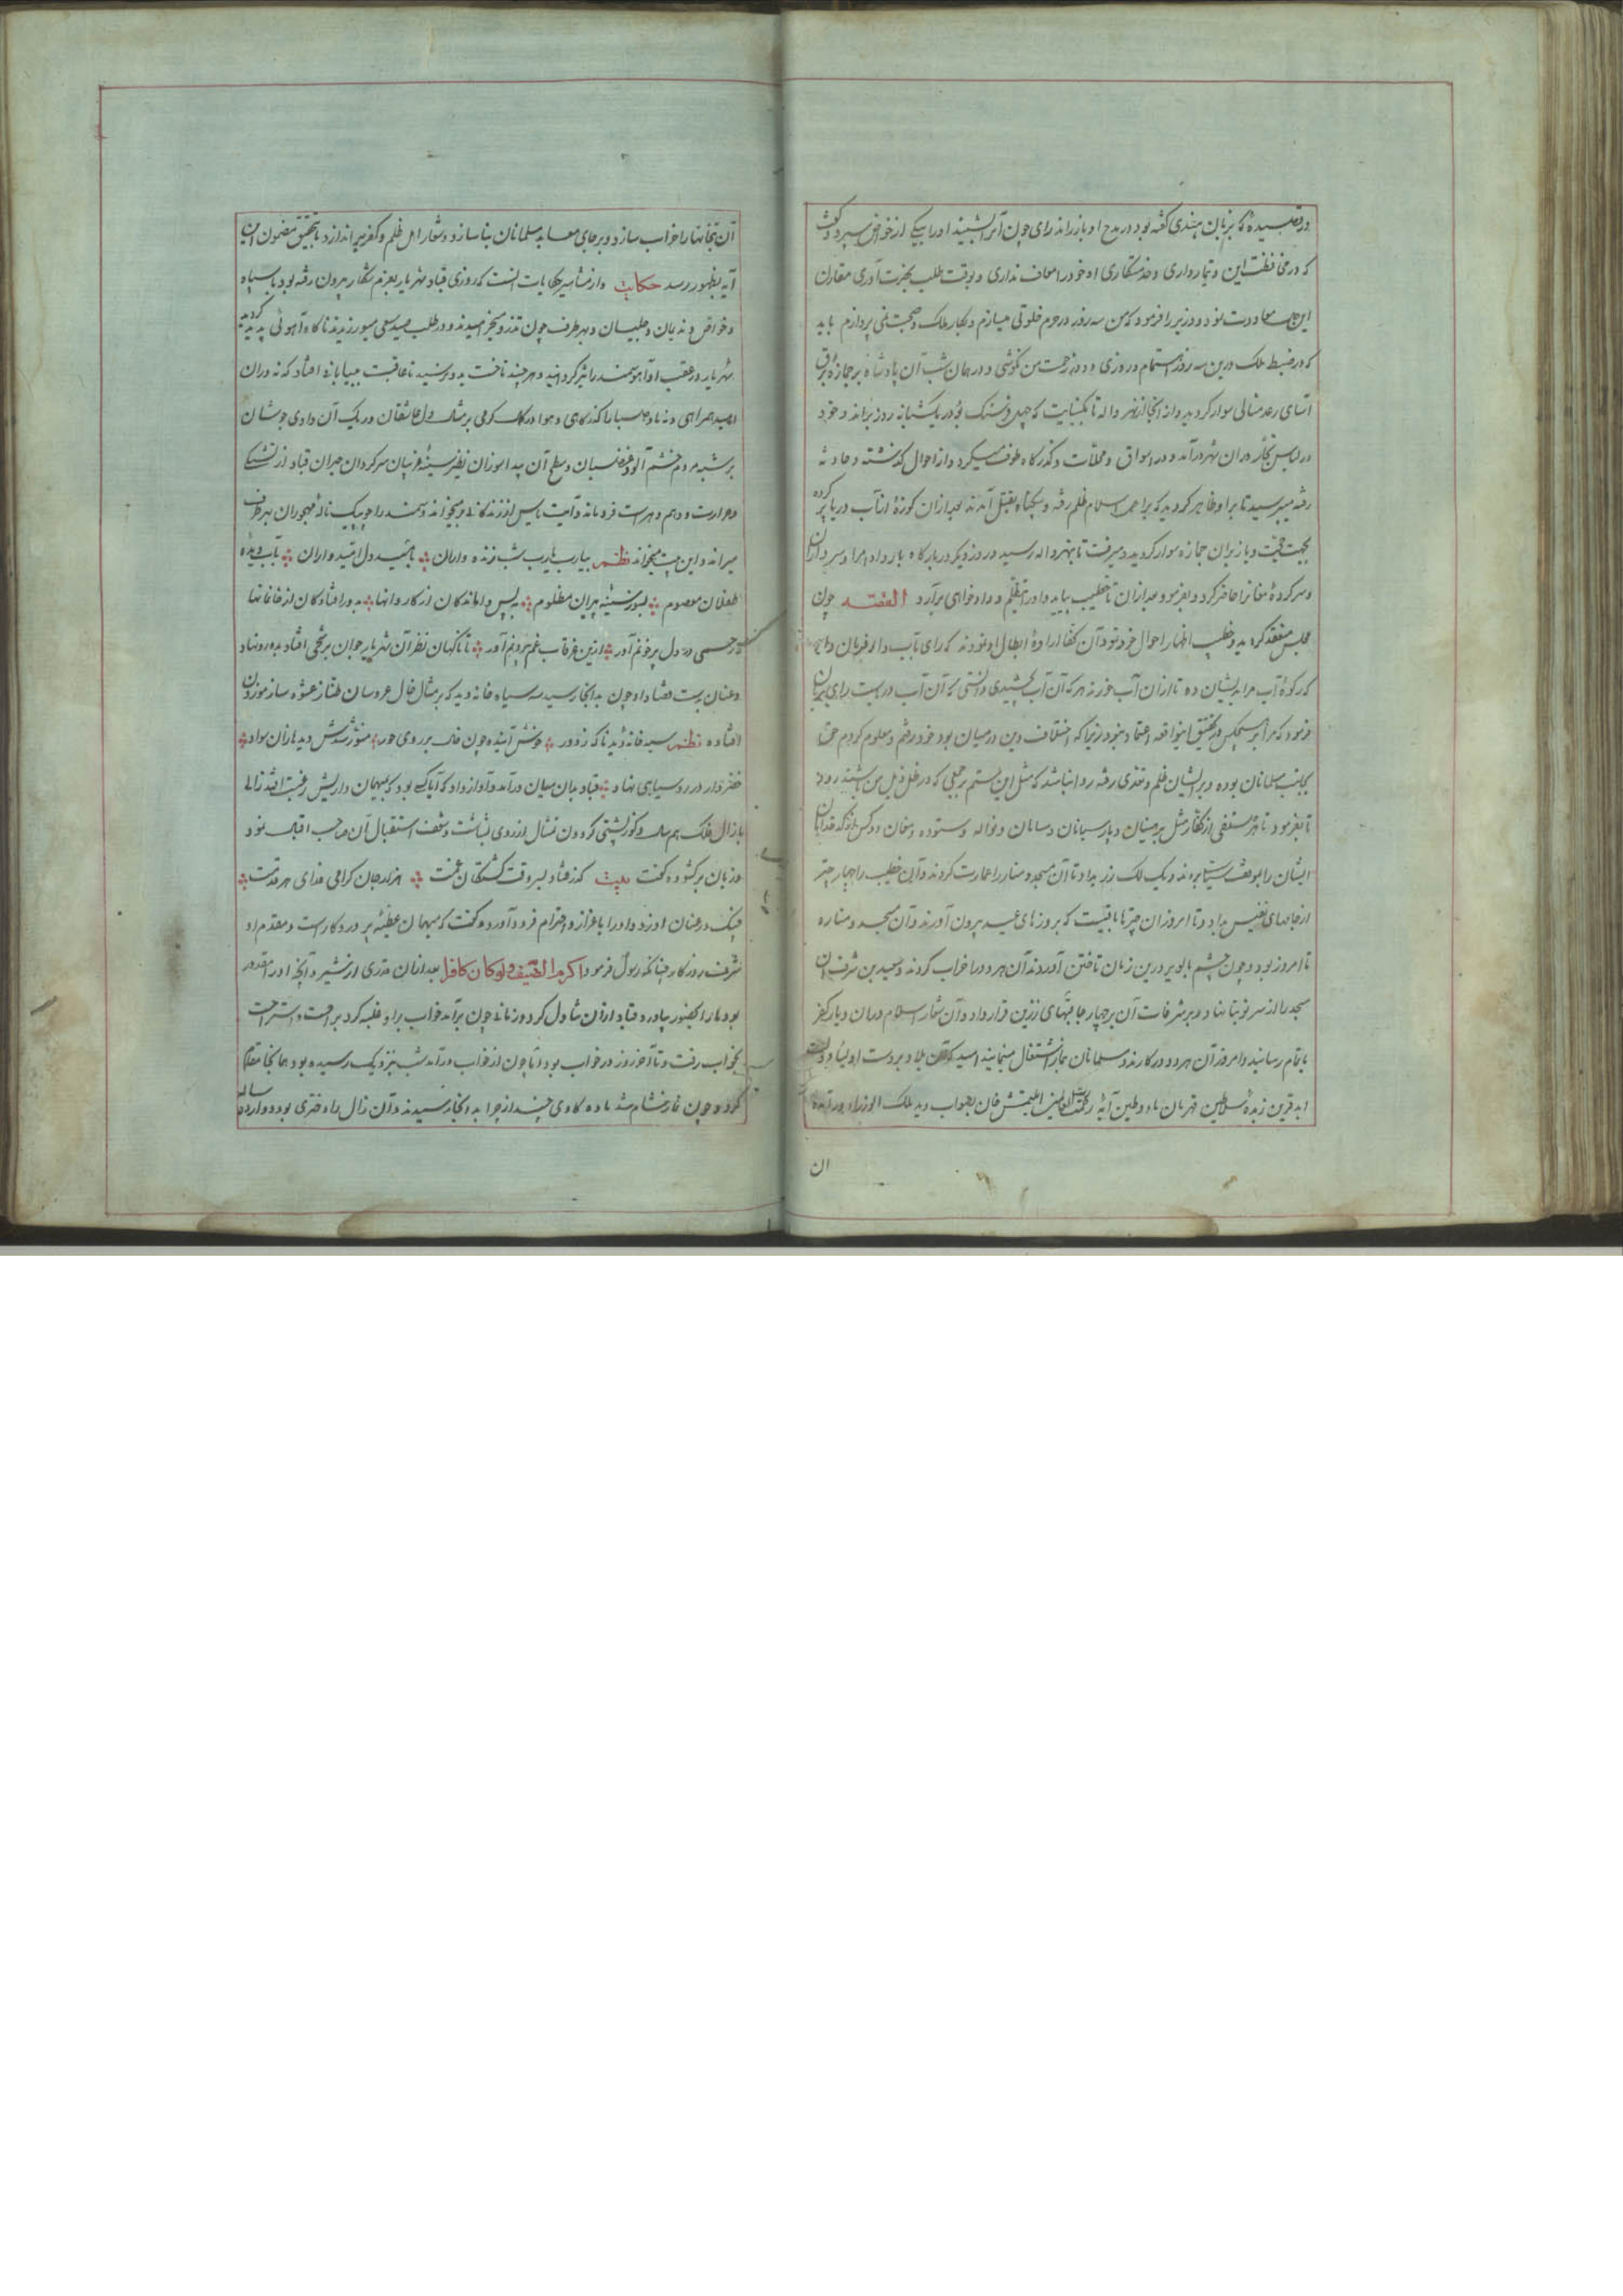 در قصیده که بزبان هندی گفته بود در مدح او باز راند رای چون آن بشنید او را بیکی از خواص سپرد و گفت
که در محافظت این و تیمارداری و خدمتکاری او خود را معاف نداری و بوقت طلب بحضرت آوری مقارن
این معاودت نمود و وزیر را فرمود که من سه روز در حرم خلوتی میسازم و بکار ملک و صحبت نمی پردازم باید
که در ضبط ملک درین سه روز اهتمام در روزی و زحمت من نکوشی و در همان شب آن پادشاه بر جمازه برق
آسای رعد مثالی سوار گردید و از آنجا از نهرواله تا بکنبایت که چهل فرسنگ بود در یک شبانه روز براند و خود
در لباس تجار در آن شهر درآمد و در اسواق و محلات و گذرگاه طوف میکرد و از احوال گذشته و حادثه
رفته میپرسید تا بر او ظاهر گردید که بر اهل اسلام ظلم رفته و بیگناه بقتل آمدند بعد از آن کوزهٔ از آب دریا پر کرده
بجهت حجت و باز بران جمازه سوار گردید و میرفت تا بنهرواله رسید و روز دیگر در بارگاه بار داد و امرا و سرداران
و سرکردهٔ مغانرا حاضر کرد و بفرمود بعد ازان تا خطیب بیاید و او را تظلم و دادخواهی برآرد القصه چون
مجلس منعقد گردید و خطیب اظهار احوال خود نمود آن کفار ارادهٔ ابطال او نمودند که رای آب دار فرمان داد
که کوزهٔ آب مرا بایشان ده تا ازان آب خورند هر که آن آب بچشیدی دانستی که آن آب دریاست رای بزبان
فرمود که مرا بر هیچکس در تحقیق اینواقعه اعتماد نبود زیرا که اختلاف دین در میان بود خود رفتم و معلوم کردم حق
بجانب مسلمانان بوده و بر ایشان ظلم و تعدی رفته روا نباشد که مثل این ستم بر جمعی که در ظل من باشند رود
تا بفرمود تا هر صنفی از کفار مثل برهمنان و پارسیان و و ستوده و مغان دو کس از کدخدایان
ایشان را بموقف سیاست بردند و یک لک زر بداد تا آن مسجد و منار را عمارت کردند و آن خطیب را چهار چتر
از جامهای نفیس بداد و تا امروز ان چترها باقیست که بروزهای عید بیرون آورند و آن مسجد و مناره
تا امروز بود و چون حشم بالو درین زمان تاختن آوردند آن هر دو را خراب کردند و سعید بن شرف آن
مسجد را از سر نو بنا نهاد و بر شرفات آن بر چهار جانب قبهای زرین قرار داد و آن شعار اسلام دران دیار کفر
باتمام رسانید و امروز آن هر دو در کارند و مسلمانان بنماز اشتغال مینمایند امید که آن بلاد بر دست اولیاء دولت
ابد قرین زبدهٔ سلاطین قهرمان ماء و طین آیهٔ رحمت العالمین ایلتمتش خان بصواب دید ملک الوزراء
ان
آن بتخانها را خراب سازد و بر جای معابد مسلمانان بنا سازد و شعار اهل ظلم و کفر براندازد تا تحقیق مضمون این
آیه بظهور رسد حکایت و از مشاهیر حکایات است که روزی قباد شهریار بعزم شکار بیرون رفته بود با سپاه
و خواص و ندیمان و جلیسان و بهر طرف چون تذرو میخرامیدند و در طلب صید سعی میورزیدند ناگاه آهوئی پدید گردید
شهریار در عقب او آهو سمند را تیز گردانید و هر چند تاخت بدو نرسید تا عاقبت به بیابانی افتاد که نه در آن
امید همراهی و نه باد صبا را گذرگاهی و هوا در گرمی بر مثال دل عاشقان و ریگ آن وادی جوشان
برشبه مردم خشم آلود غضبان و سطح آن پیدا سوزان نظیر سینهٔ غریبان سرگردان حیران قباد از تشنگی
و حرارت و وهم و هراست فرو ماند و آیت یاس از زندگانی میخواند و سمند را چو پیک نالهٔ مهجوران بهر طرف
میراند و این بیت میخواند نظم بیارب یارب شب زنده داران بامید دل امیدواران بآب دیده
طفلان معصوم بسوز سینهٔ پیران مظلوم به پس واماندگان از کاروانها بدور افتادگان از خانمانها
که رحمی در دل پرخونم آور ازین غرقاب غم بیرونم آور تا ناگهان نظر آن شهریار جوان بر افتاد بدو رو نهاد
و عنان بدست قضا داد چون بدانجا رسید سه سیاه خانه دید که بر مثال خال عروسان طناز عشوه ساز موزون
افتاده نظم سیه خانه دید ناگه ز دور خوش آینده چون خال بر روی حور منور شدش دیده ازان سواد
خضروار در رو سیاهی نهاد قباد بدان میان درآمد و آواز داد که آیا کسی بود که بمیهمان داریش رغبت افتد زالی
با زال فلک هم سال و کوژ پشتی گردون تمثال از روی بشاشت و شعف استقبال آن صاحب اقبال نمود
و زبان برگشوده گفت بیت گذر فتاد بسر وقت کشتگان غمت هزار جان گرامی فدای هر قدمت
چنگ در عنان او زد و او را باعزاز و احترام فرود آورد و گفت که میهمان عطیهٔ پروردگار است و مقدم او
شرف روزگار چنانکه رسول فرمود اکرم الضیف ولو کان کافرا بعد ازان قدری از شیر و آنچه او را مقدور
بود ما را بحضور بیاورد و قباد ازان تناول کرد و زمانی چون برآمد خواب بر او غلبه کرد بر احت و استراحت
بخواب رفت و تا آخر روز در خواب بود تا چون از خواب درآمد شب نزدیک رسیده بود همانجا مقام
کرد و چون نماز شام شد ماده گاوی چند از چرا بدانجا رسیدند و آن زال را دختری بود دوازده ساله